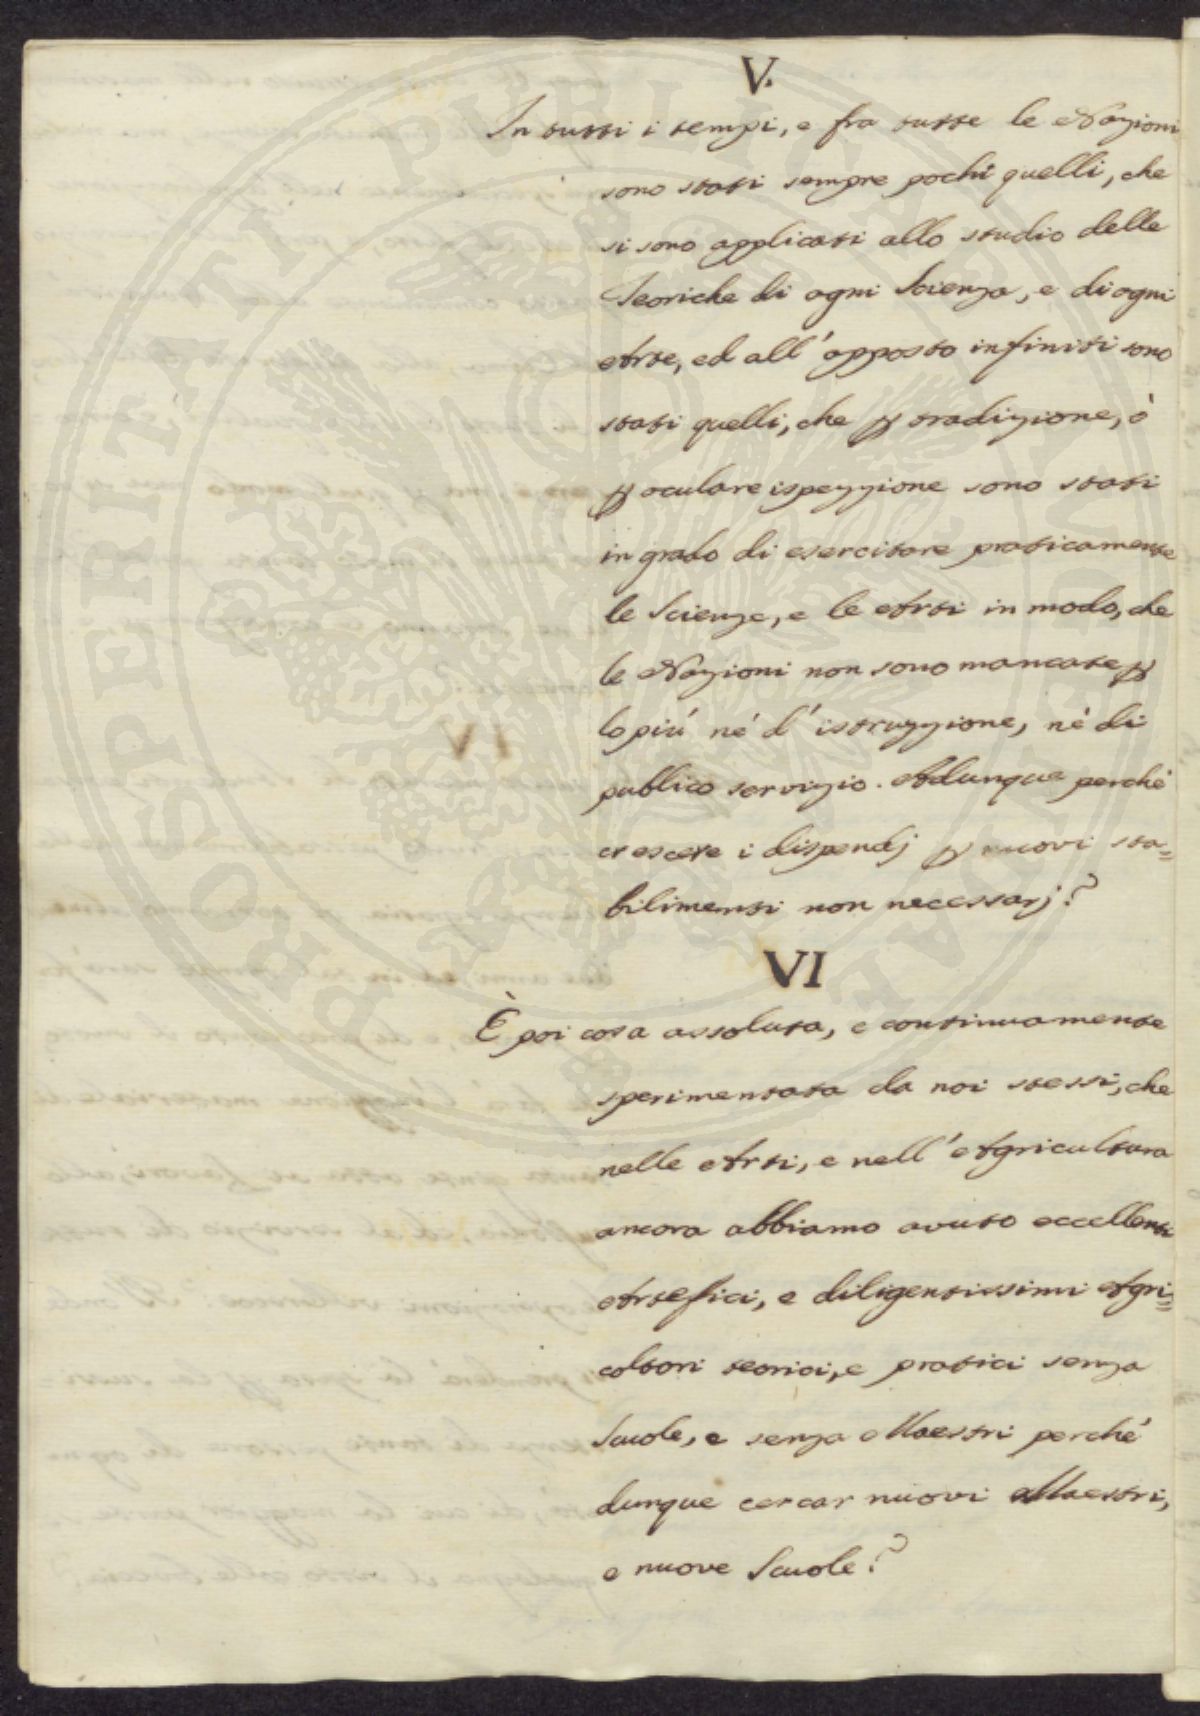 V.
In tutti i tempi, e fra tutte le Nazioni
sono stati sempre pochi quelli, che
si sono applicati allo studio delle
Teoriche di ogni Scienza, e di ogni
Arte, ed all' opposto infiniti sono
stati quelli, che p tradizione, ò
p oculare ispezzione sono stati
in grado di esercitare praticamente
le Scienze, e le Arti in modo, che
le Nazioni non sono mancate p
lo più né d' istruzzione, né di
publico servizio. Adunque perché
crescere i dispendj p nuovi sta=
bilimenti non necessarj?
VI
È poi cosa assoluta, e continuamente
sperimentata da noi stessi, che
nelle Arti, e nell' Agricultura
ancora abbiamo avuto eccellenti
Artefici, e diligentissimi Agri=
coltori teorici, e pratici senza
Scuole, e senza Maestri perché
dunque cercar nuovi Maestri,
e nuove Scuole?
PROSPERITATI PUBLICAE AUGENDAE